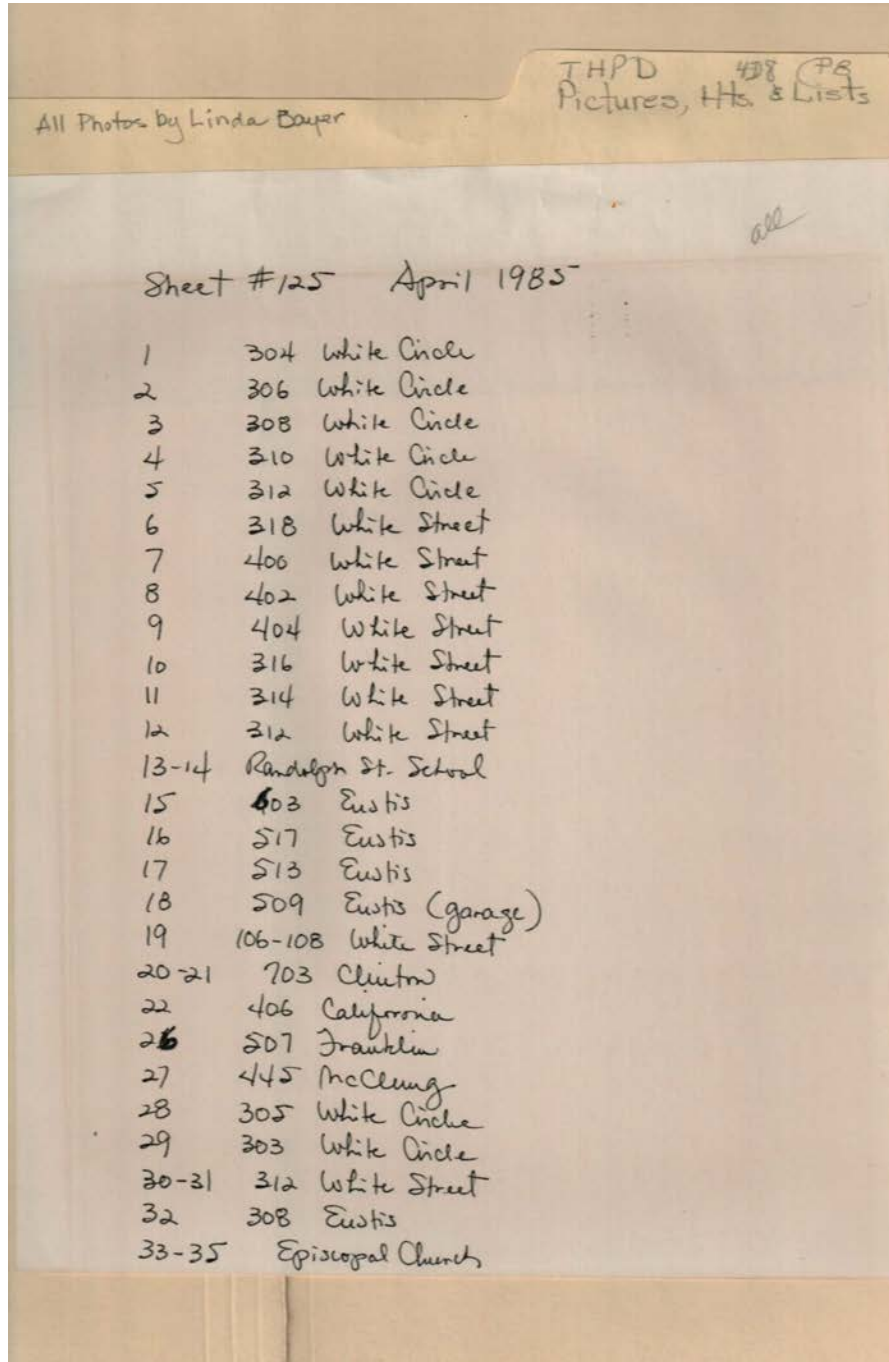 THPD 408 (PB
Pictures, Hts. & Lists
All Photos by Linda Bayer
all
Sheet #125 April 1985
1 304 White Circle
2 306 White Circle
3 308 White Circle
4 310 White Circle
5 312 White Circle
6 318 White Street
7 400 White Street
8 402 White Street
9 404 White Street
10 316 White Street
11 314 White Street
12 312 White Street
13-14 Randolph St. School
15 603 Eustis
16 517 Eustis
17 513 Eustis
18 509 Eustis (garage)
19 106-108 White Street
20-21 703 Clinton
22 406 Califoronia
26 507 Franklin
27 445 McClung
28 305 White Circle
29 303 White Circle
30-31 312 White Street
32 308 Eustis
33-35 Episcopal Church